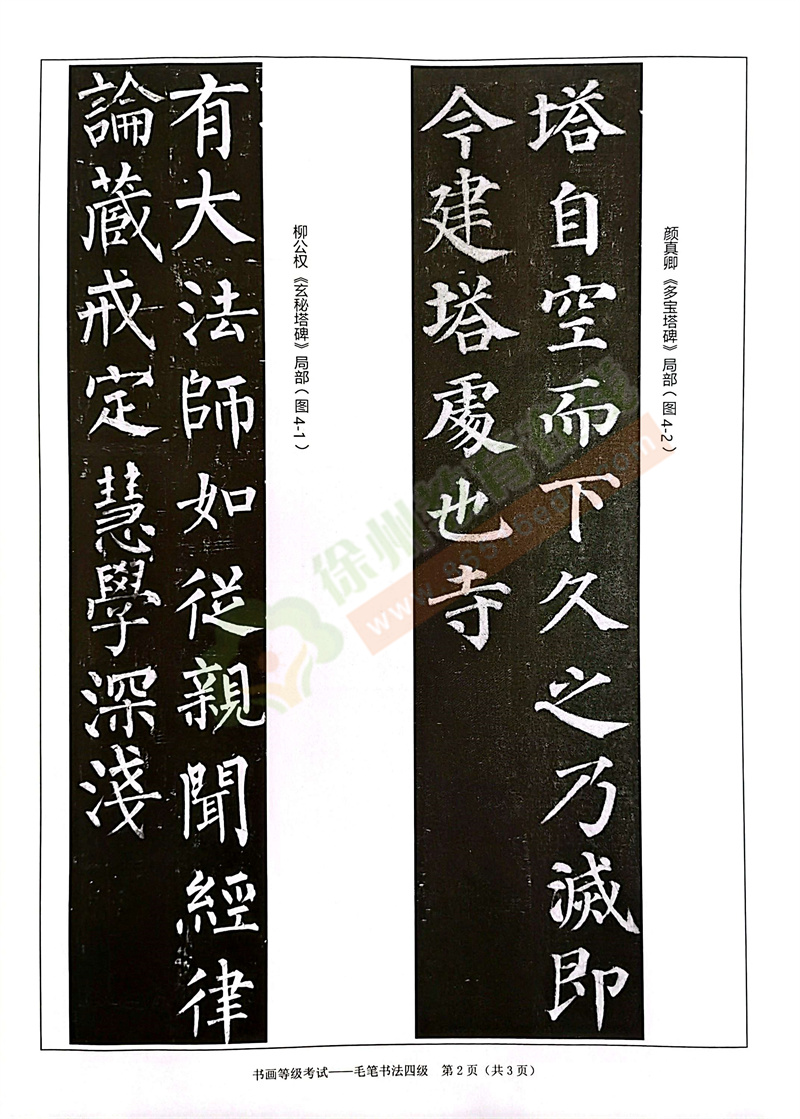 塔自空而下久之乃滅即
今建塔處也寺
颜真卿《多宝塔碑》局部（图4-2）
有大法師如從親聞經律
論藏戒定慧學深淺
柳公权《玄秘塔碑》局部（图4-1）
徐州教育在线
书画等级考试——毛笔书法四级 第2页（共3页）